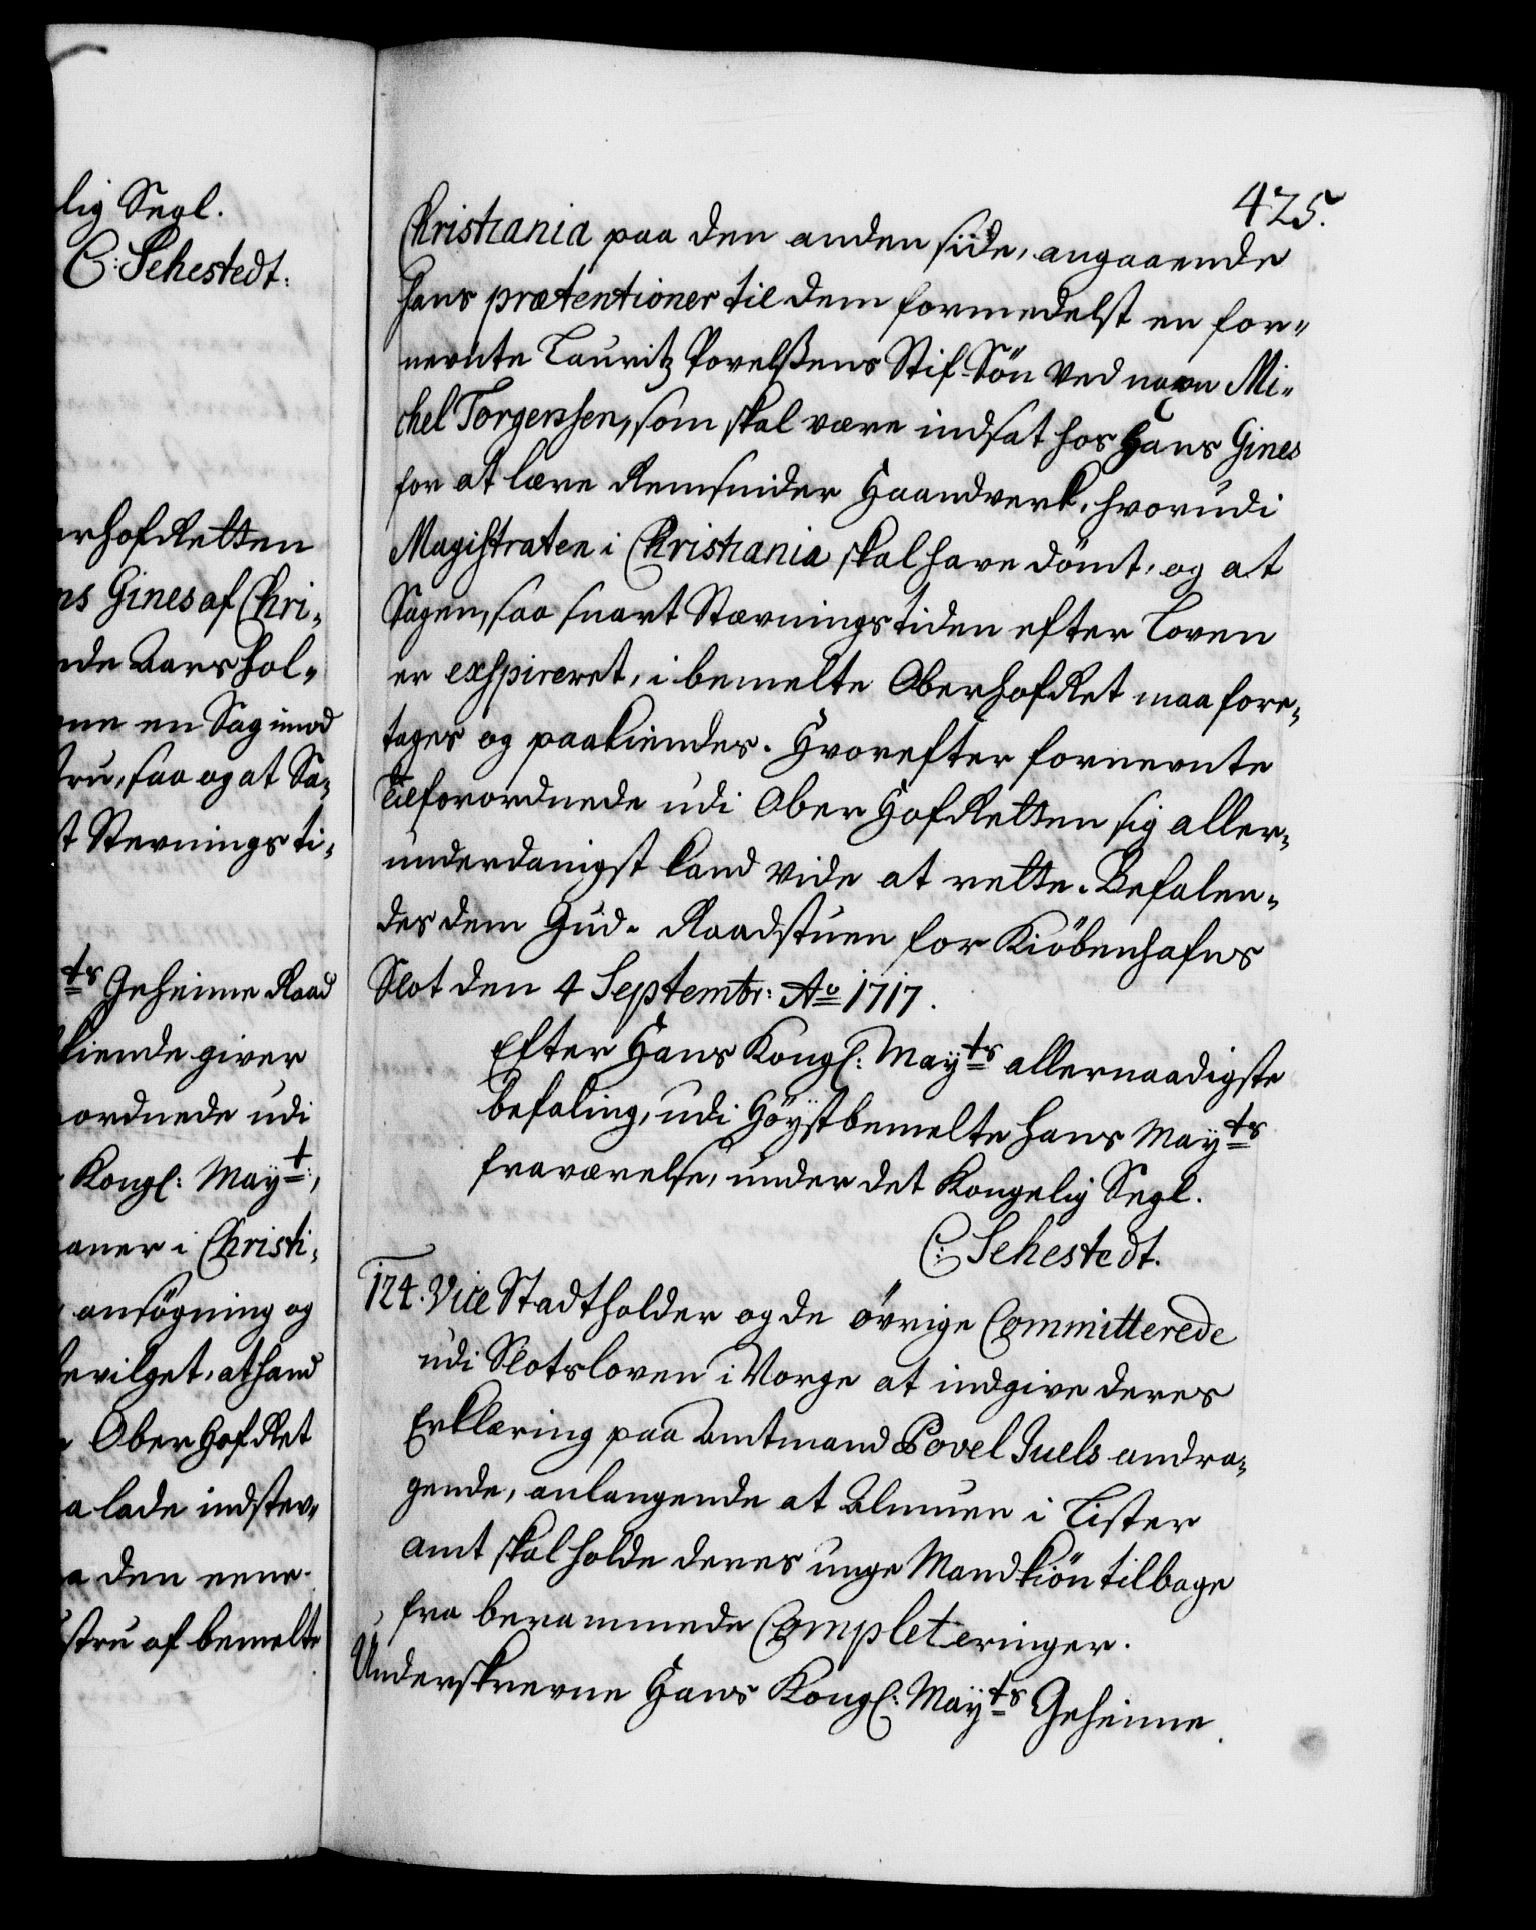 lig Segl.
C: Sehestedt.
erhofRetten
ns Gines af Chri-
nde Aars hol-
ne en Sag imod
tru, saa og at Sa-
t Stevnings ti-
ts Geheime Raad
kiende giver
ordnede udi
Kongl: Mayt:,
aner i Christi-
ansøgning og
bevilget, at hand
OberHofRet
a lade indstev-
a den eene
stru af bemelte
425.
Christiania paa den anden side, angaaende
hans prætentioner til dem formedelst en for-
nevnte Lauritz Povelßens Stif-Sön ved navn Mi-
chel Torgensen, som skal være indsat hos Hans Gines
for at lære Remsnider Haandverk, hvorudi
Magistraten i Christiania skal have dömt, og at
Sagen, saa snart Stævningstiden efter Loven
er exspireret, i bemelte OberhofRet maa fore-
tages og paakiendes. Hvorefter fornevnte
Tilforordnede udi Ober HofRetten sig aller-
underdanigst kand vide at rette. Befalen-
des dem Gud. Raadstuen for Kiöbenhafns
Slot den 4 Septembr: Ao 1717.
Efter Hans Kongl: Mayts allernaadigste
befaling, udi Höystbemelte Hans Mayts
fraværelse, under det Kongelig Segl.
C: Sehestedt.
124. Vice Stadtholder og de övrige Committerede
udi Slotsloven i Norge at indgive deres
Erklæring paa Amtmand Povel Juels andra-
gende, anlangende at Almuen i Lister
Amt skal holde deres unge Mandkiön tilbage
fra berammede Completeringer.
Underskrevne Hans Kongl: Mayts Geheime